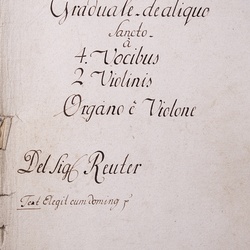 Graduale de aliquo
Sancto
à
4. Vocibus
2 Violinis
Organo è Violone
Del Sig. Reuter
Text Elegit eum doming